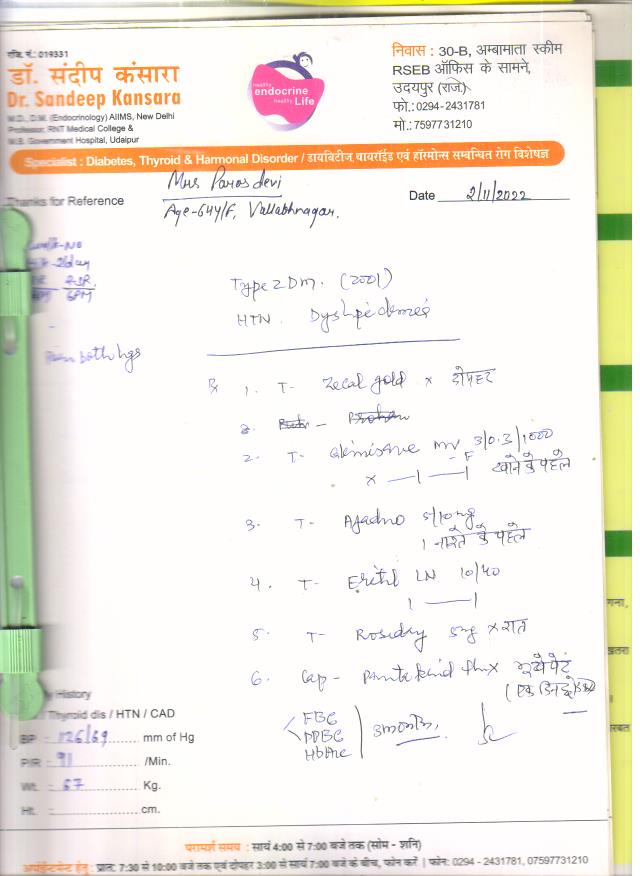 रजि. नं.: 019331
डॉ. संदीप कंसारा
Dr. Sandeep Kansara
M.D., D.M. (Endocrinology) AIIMS, New Delhi
Professor, RNT Medical College &
M.B. Government Hospital, Udaipur
healthy
endocrine
healthy Life
निवास : 30-B, अम्बामाता स्कीम
RSEB ऑफिस के सामने,
उदयपुर (राज.)
फो.: 0294-2431781
मो.: 7597731210
Specialist : Diabetes, Thyroid & Harmonal Disorder / डायबिटीज, थायरॉईड एवं हॉरमोन्स सम्बन्धित रोग विशेषज्ञ
Thanks for Reference
Mrs Paros devi
Age-64Y/F, Vallabhnagar.
Date 2/11/2022
6PM
Pain both legs
Type 2 DM. (2001)
HTN.
Rx 1. T- Zecal gold x दोपहर
2. T- MV 3/0.3/1000
x —1—1 खाने के पहले
3. T- Ajaduo 5/10mg
1 नाश्ते के पहले
4. T- Eritel LN 10/40
1 ——
5. T- 5mg x रात
6. Cap-
FBG
PPBG
HbA1c
3 months
History
Thyroid dis / HTN / CAD
BP : 126/69 mm of Hg
P/R : 91 /Min.
Wt. : 67 Kg.
Ht. : cm.
परामर्श समय : सायं 4:00 से 7:00 बजे तक (सोम - शनि)
अपॉईन्टमेन्ट हेतु : प्रात: 7:30 से 10:00 बजे तक एवं दोपहर 3:00 से सायं 7:00 बजे के बीच, फोन करें | फोन: 0294 - 2431781, 07597731210